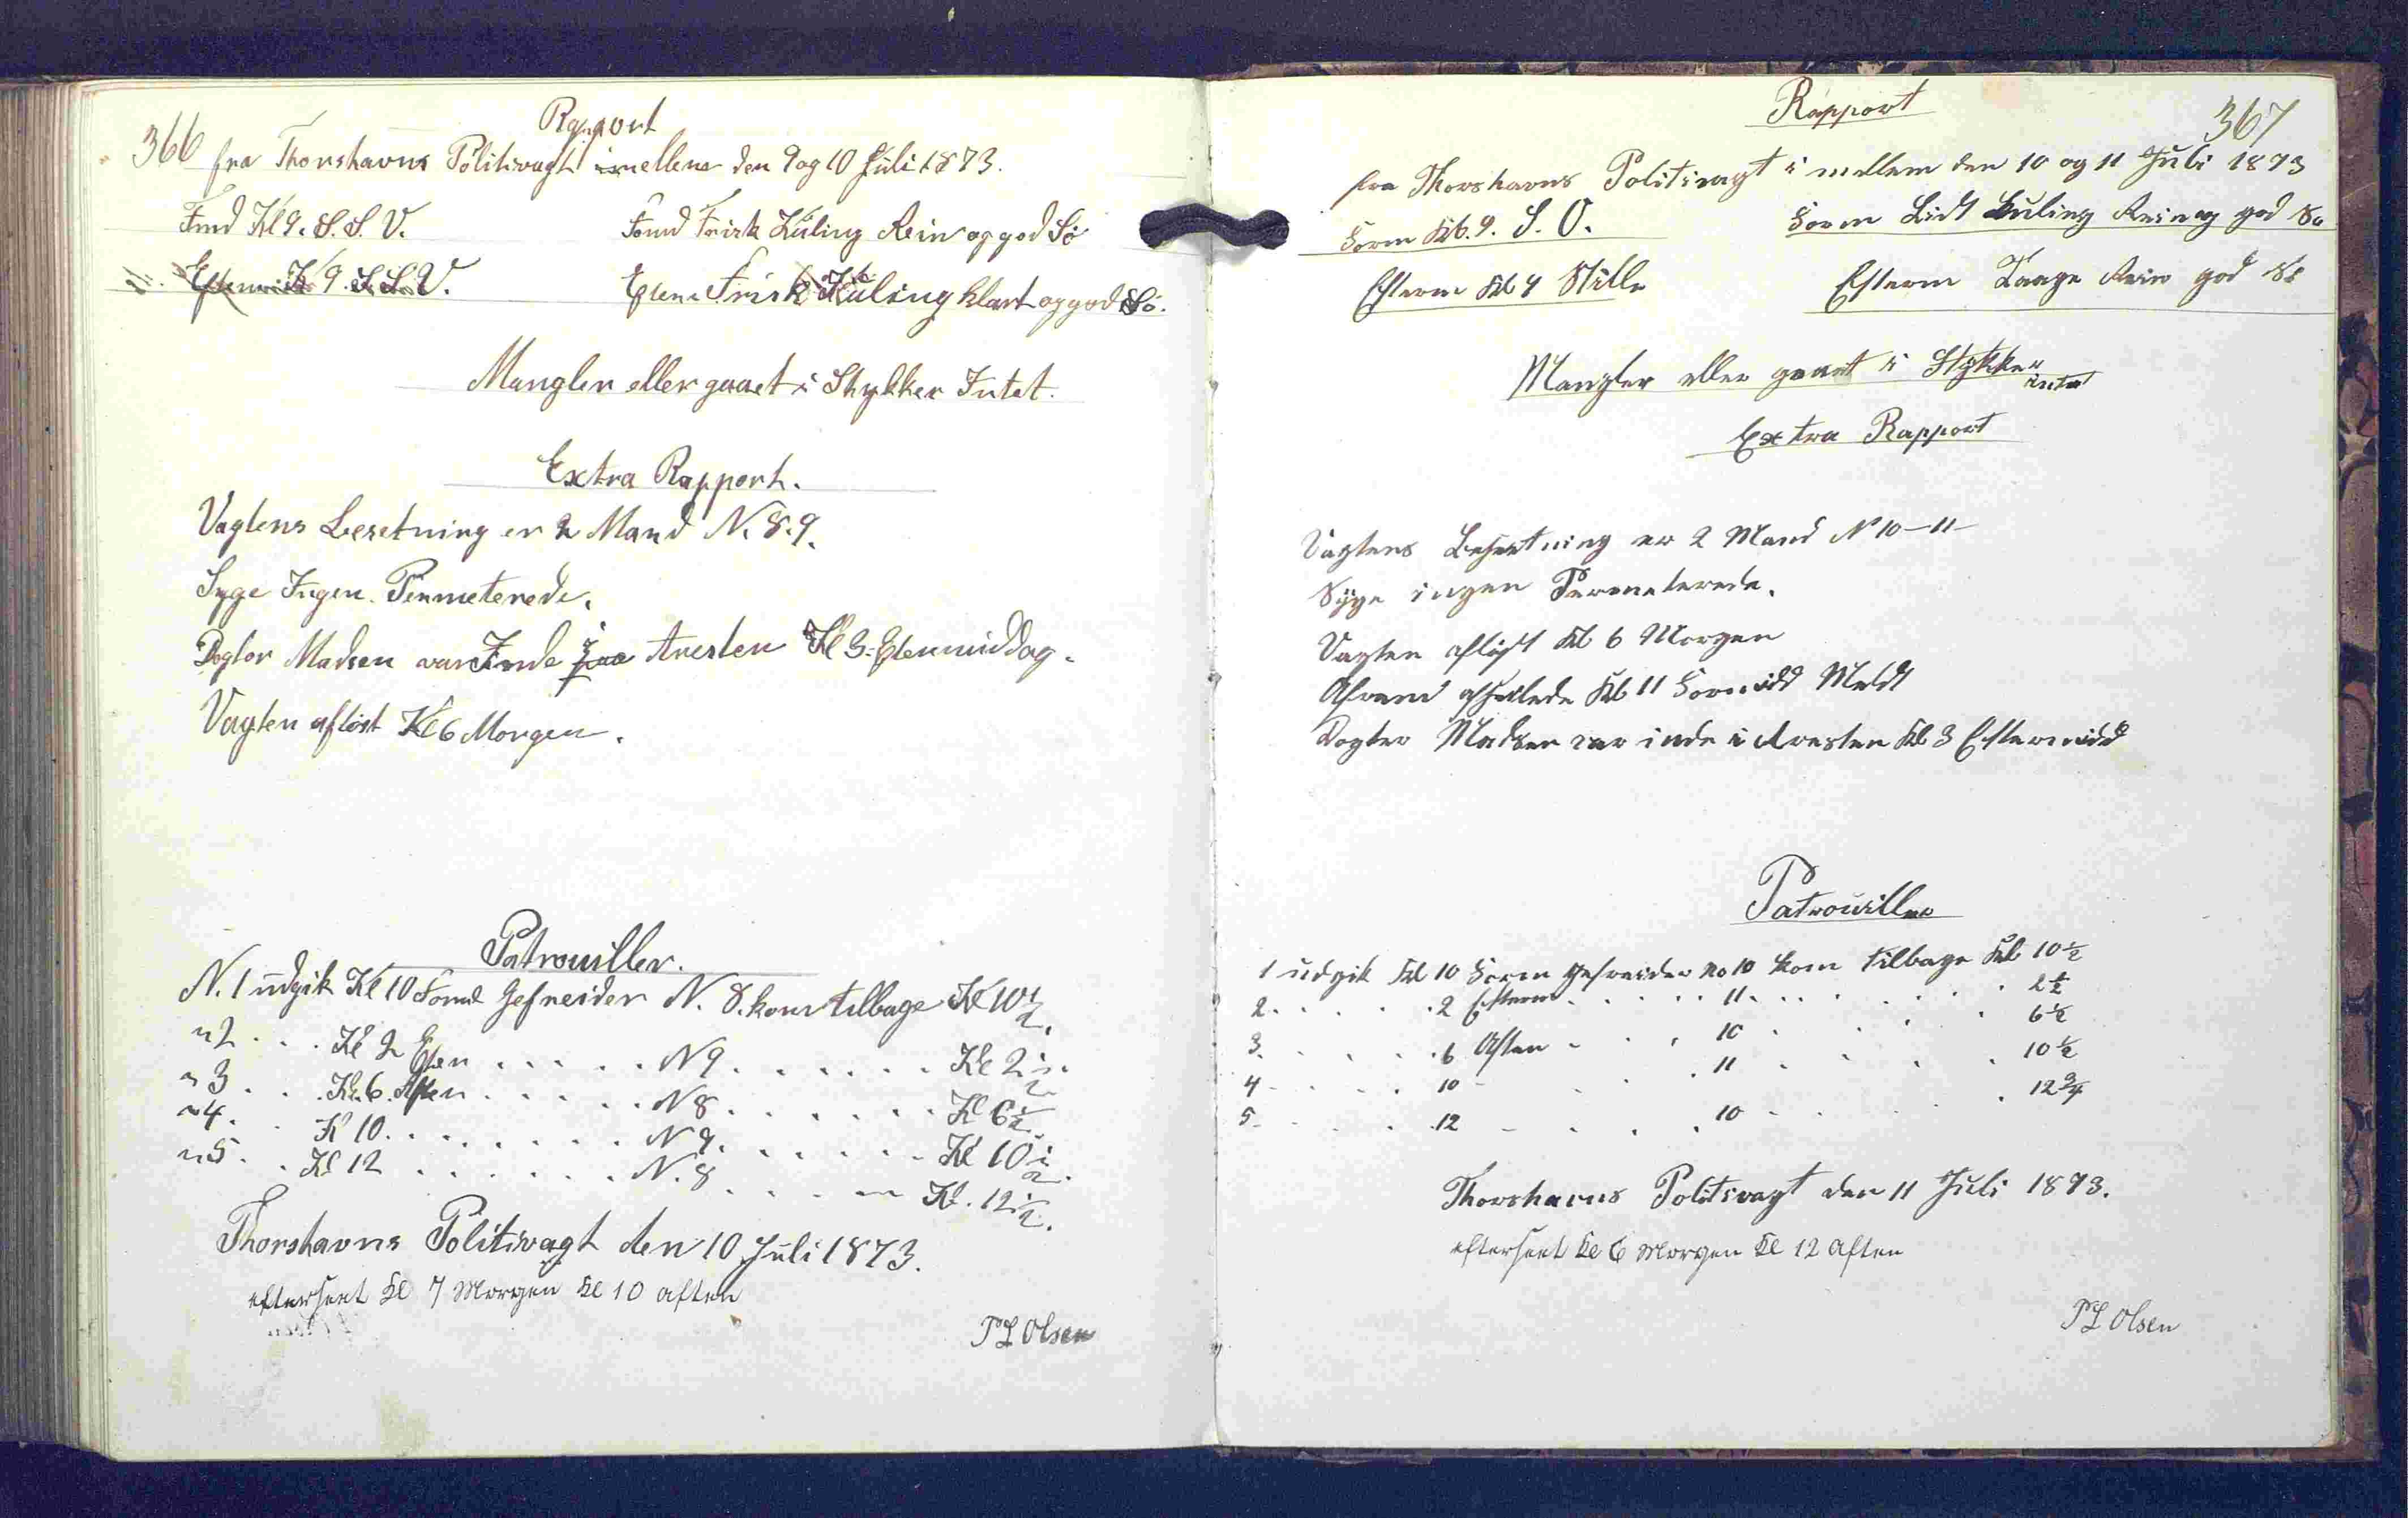 366
Rapport
fra Thorshavns Politivagt imellem den 9 og 10 Juli 1873.
Fmd Kl 9. S. S. V.
Formd Frisk Kuling Rein og god Sö
Efterm Kl 9. S. S. V.
Efterm Frisk Kuling klart og god Sö.
Mangler eller gaaet i Stykker Intet.
Extra Rapport.
Vagtens Besetning er 2 Mand N. 8. 9.
Syge Ingen. Permeterede.
Dogtor Madsen var Inde i Aresten Kl 3 Etermiddag.
Vagten aflöst Kl 6 Morgen.
Patrouiller.
N. 1 udgik Kl 10 Formd Gefreider N. 8. kom tilbage Kl 10 1/2.
" 2 . . . Kl 2 Eften . . . . . N 9 . . . . . . Kl 2 1/2.
" 3 . . . Kl. 6. Aften . . . . . N 8 . . . . . . Kl 6 1/2
" 4. . Kl 10. . . . . . . . N 9. . . . . . Kl 10 1/2.
" 5. . Kl 12 . . . . . . N. 8 . . . . Kl. 12 1/2.
Thorshavns Politivagt den 10 Juli 1873.
efterseet Kl 7 Morgen Kl 10 aften
P L Olsen
367
Rapport
fra Thorshavns Politivagt i mellem den 10 og 11 Juli 1873
Form Kl. 9. S. O.
Form Lidt Kuling Rein og god Sö
Efterm Kl 4 Stille
Efterm Taage Rein god Sö
Mangler eller gaaet i Stykker
intet
Extra Rapport
Vagtens Besætning er 2 Mand N 10 - 11 -
Syge ingen Permeterede.
Vagten aflöst Kl 6 Morgen
afseilede Kl 11 Formidd Meldt
Dogter Madsen var inde i Aresten Kl 3 Eftermidd
Patrouiller
1 udgik Kl 10 Form Gefreider No 10 kom tilbage Kl 10 1/2
2. . . . . . 2 Efterm . . . . . 11. . . . . . . . 2 1/2
3. . . . . 6 Aften - . . 10 . . . . 6 1/2
4 - . . . 10 - . . . 11 . . . . 10 1/2
5 - . . . 12 - . . . 10 - . . . . 12 3/4
Thorshavns Politivagt den 11 Juli 1873.
efterseet Kl 6 Morgen Kl 12 Aften
P L Olsen